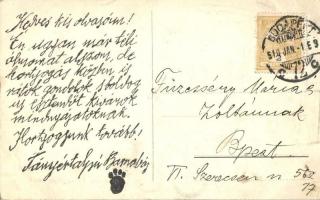 Kedves kis olvasóim!
Én ugyan már téli
álmomat alszom, de
hortyogás közben is
rátok gondolok s boldog
uj esztendőt kivánok
mindnyájatoknak.
Hortyogjunk tovább!
Tányértalpú Barnabás
BUDAPEST
Tüzesséry Mariás
Zoltánnak
Bpest
VI. Szerecsen u 56